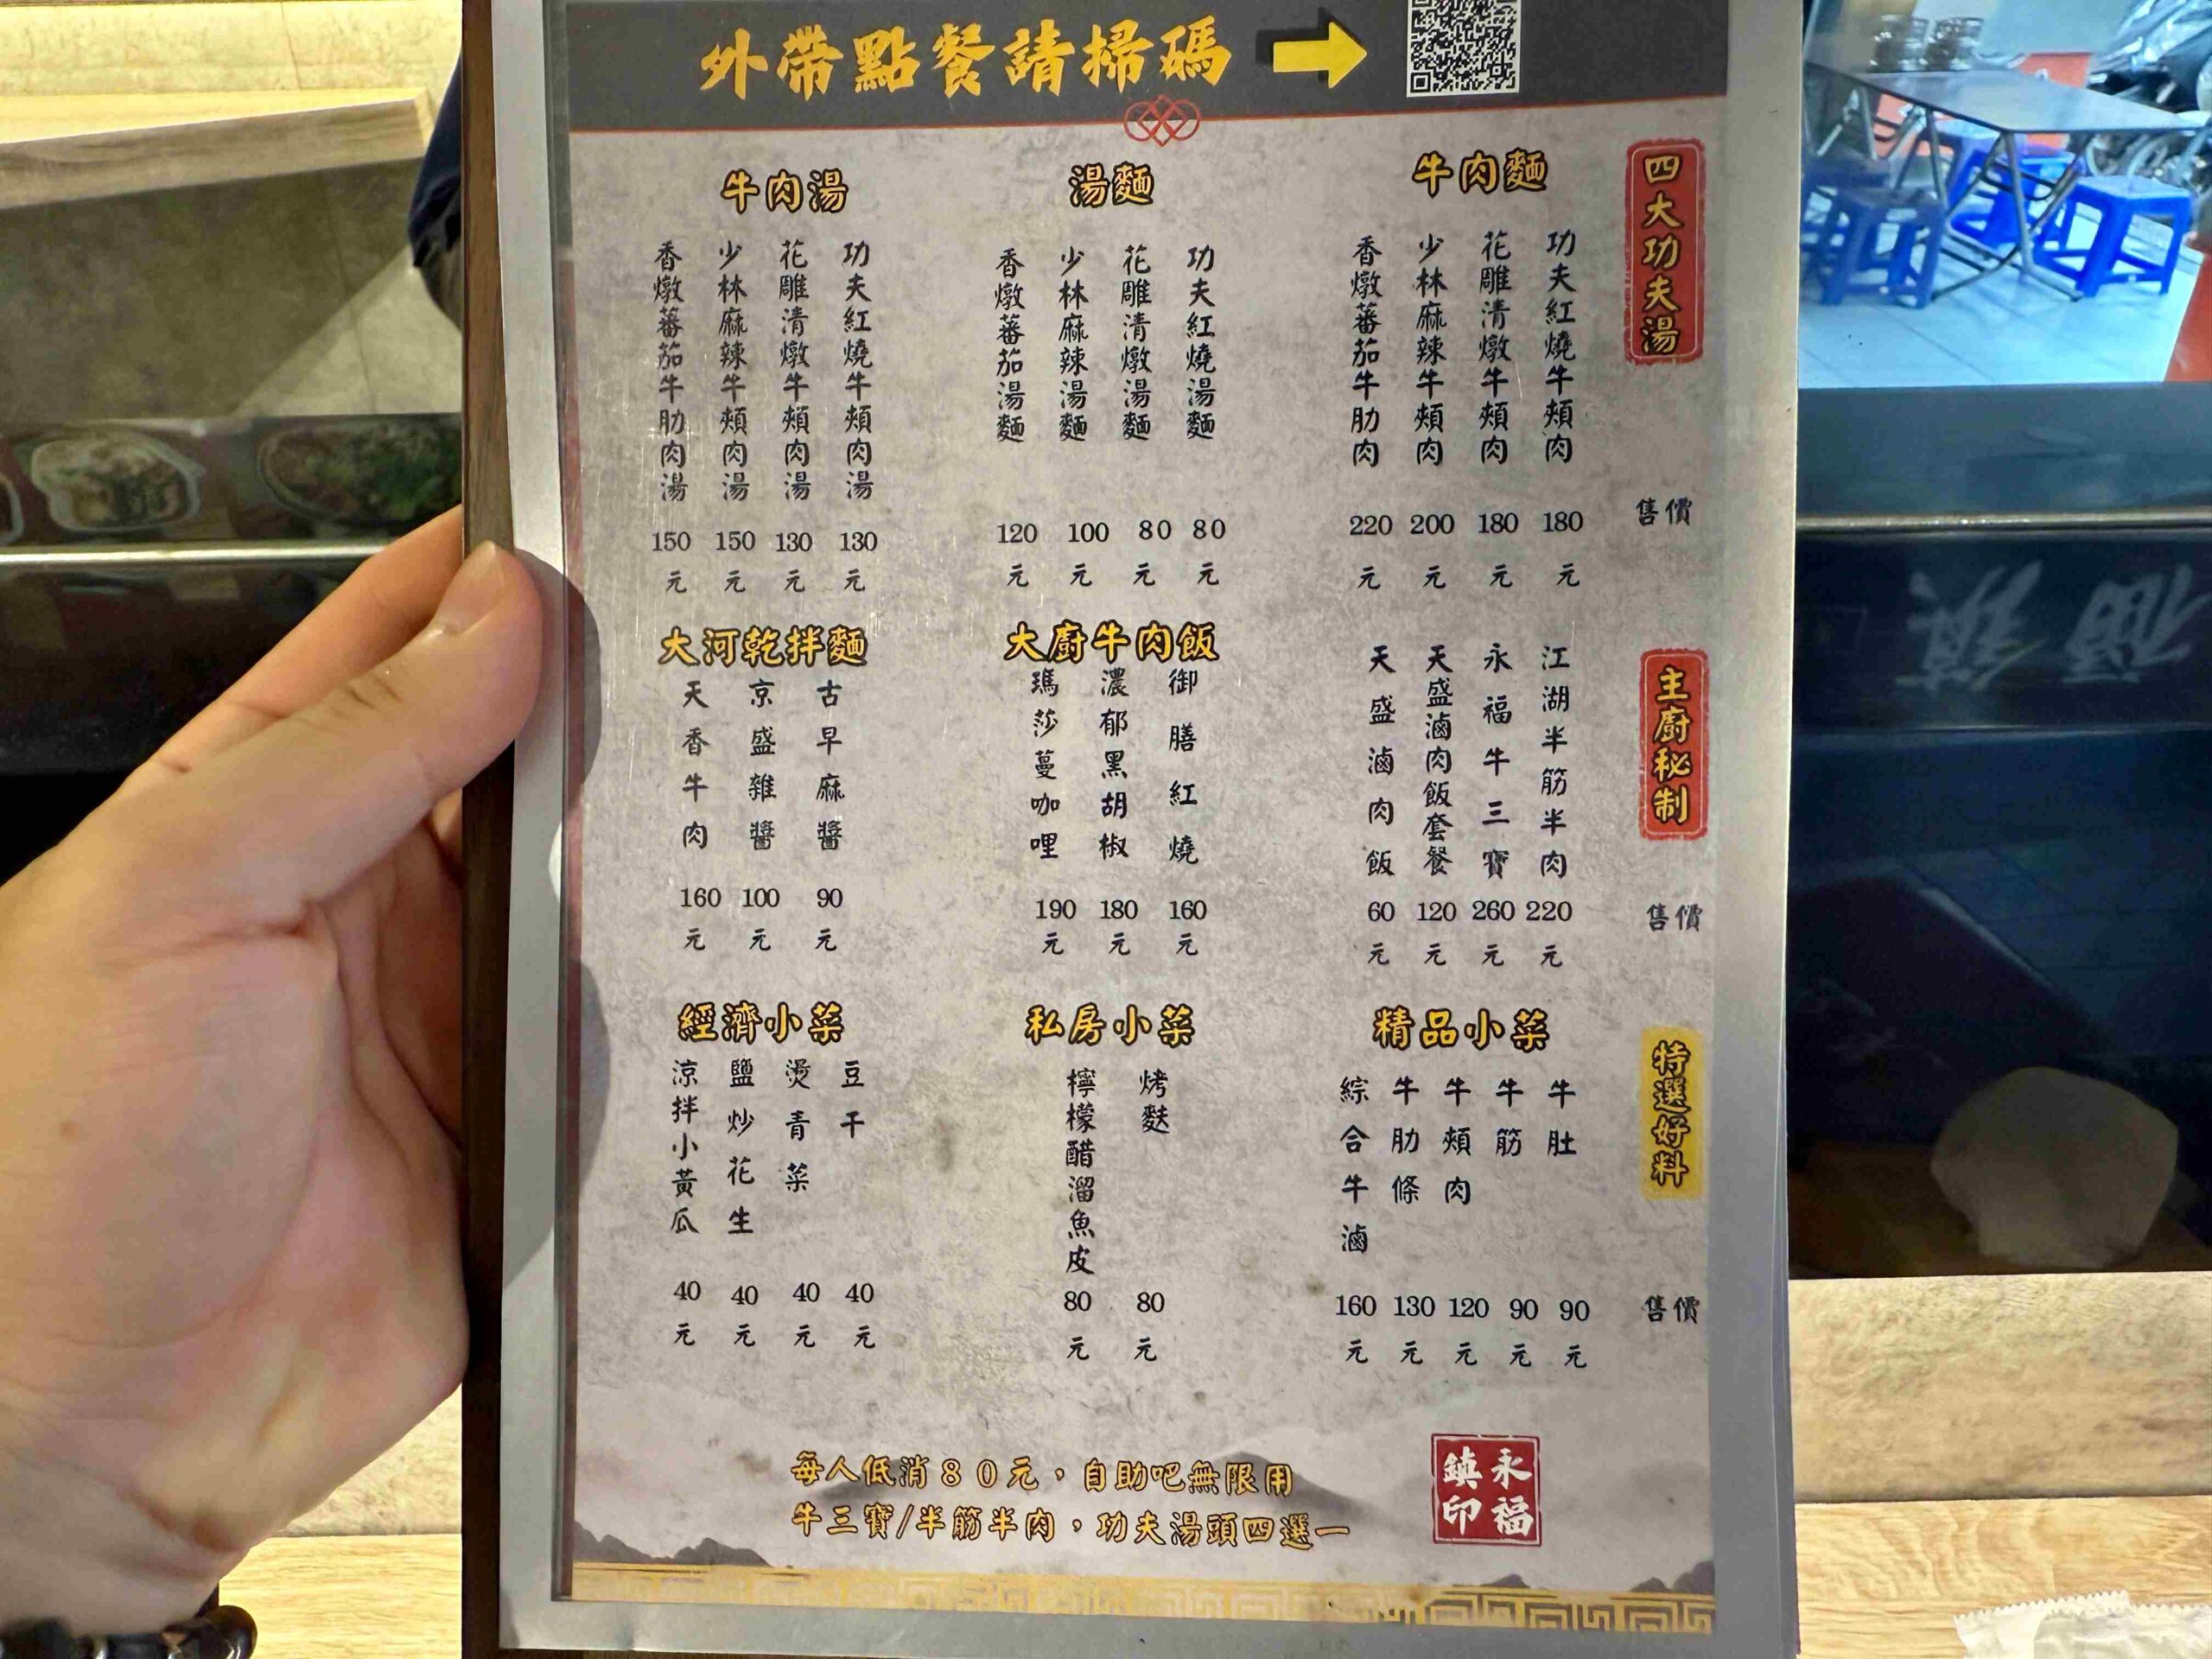 外帶點餐請掃碼
四大功夫湯
牛肉麵
功夫紅燒牛頰肉 180元
花雕清燉牛頰肉 180元
少林麻辣牛頰肉 200元
香燉蕃茄牛肋肉 220元
湯麵
功夫紅燒湯麵 80元
花雕清燉湯麵 80元
少林麻辣湯麵 100元
香燉蕃茄湯麵 120元
牛肉湯
功夫紅燒牛頰肉湯 130元
花雕清燉牛頰肉湯 130元
少林麻辣牛頰肉湯 150元
香燉蕃茄牛肋肉湯 150元
售價
主廚秘制
江湖半筋半肉 220元
永福牛三寶 260元
天盛滷肉飯套餐 120元
天盛滷肉飯 60元
大廚牛肉飯
御膳紅燒 160元
濃郁黑胡椒 180元
瑪莎蔓咖哩 190元
大河乾拌麵
古早麻醬 90元
京盛雜醬 100元
天香牛肉 160元
售價
特選好料
精品小菜
牛肚 90元
牛筋 90元
牛頰肉 120元
牛肋條 130元
綜合牛滷 160元
私房小菜
烤麩 80元
檸檬醋溜魚皮 80元
經濟小菜
豆干 40元
燙青菜 40元
鹽炒花生 40元
涼拌小黃瓜 40元
售價
每人低消80元，自助吧無限用
牛三寶/半筋半肉，功夫湯頭四選一
永福鎮印